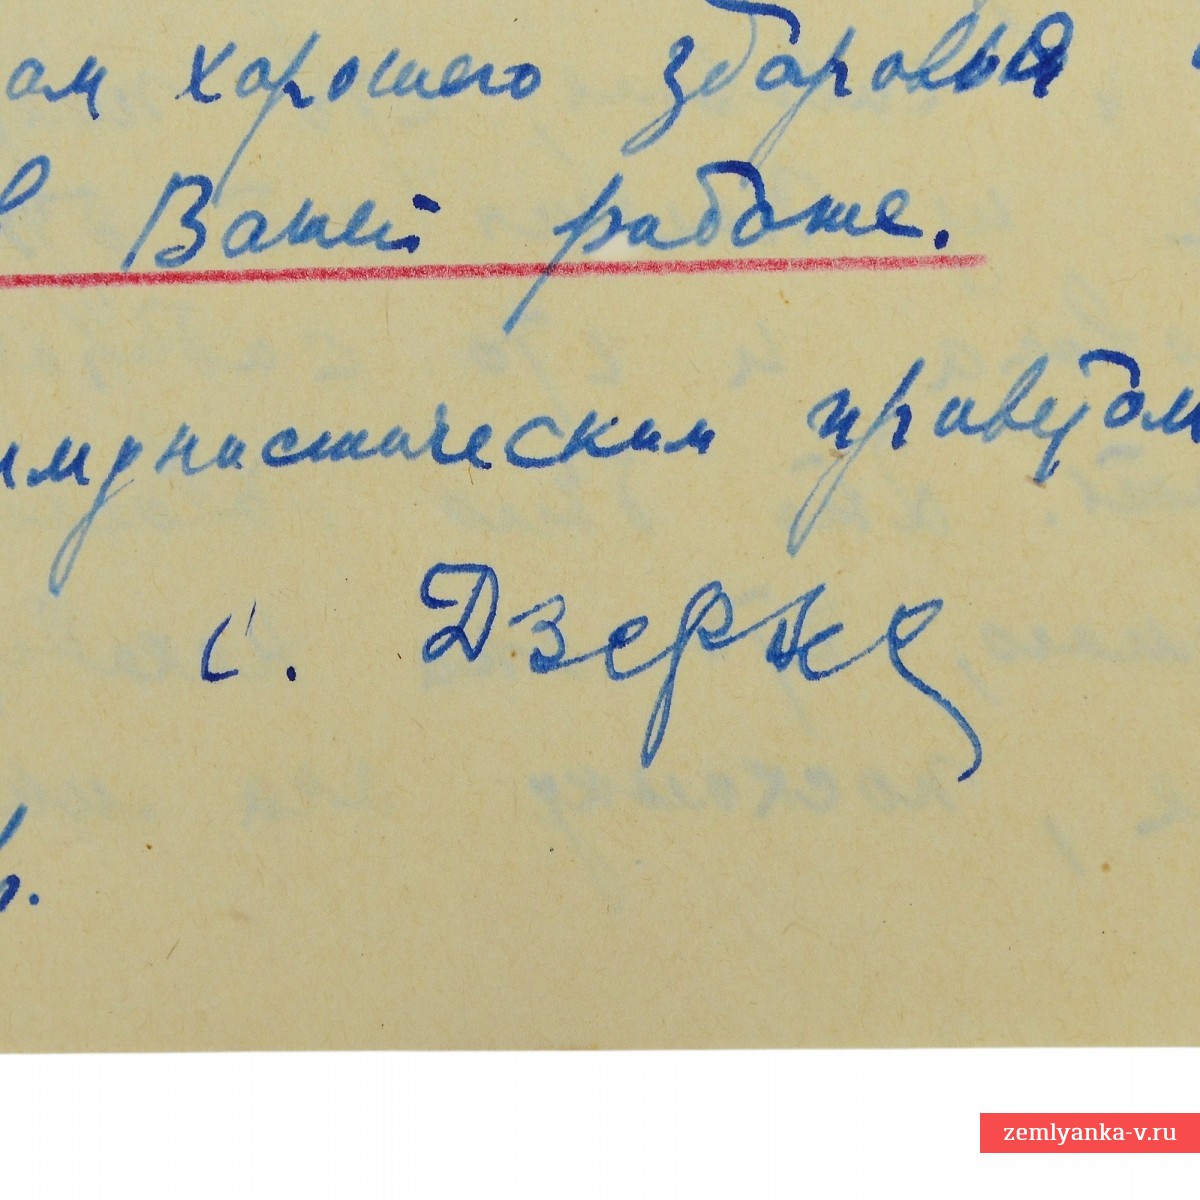 ам хорошего здоровья
в Вашей работе.
имунистическим приветом
С. Дзерже
г.
zemlyanka-v.ru